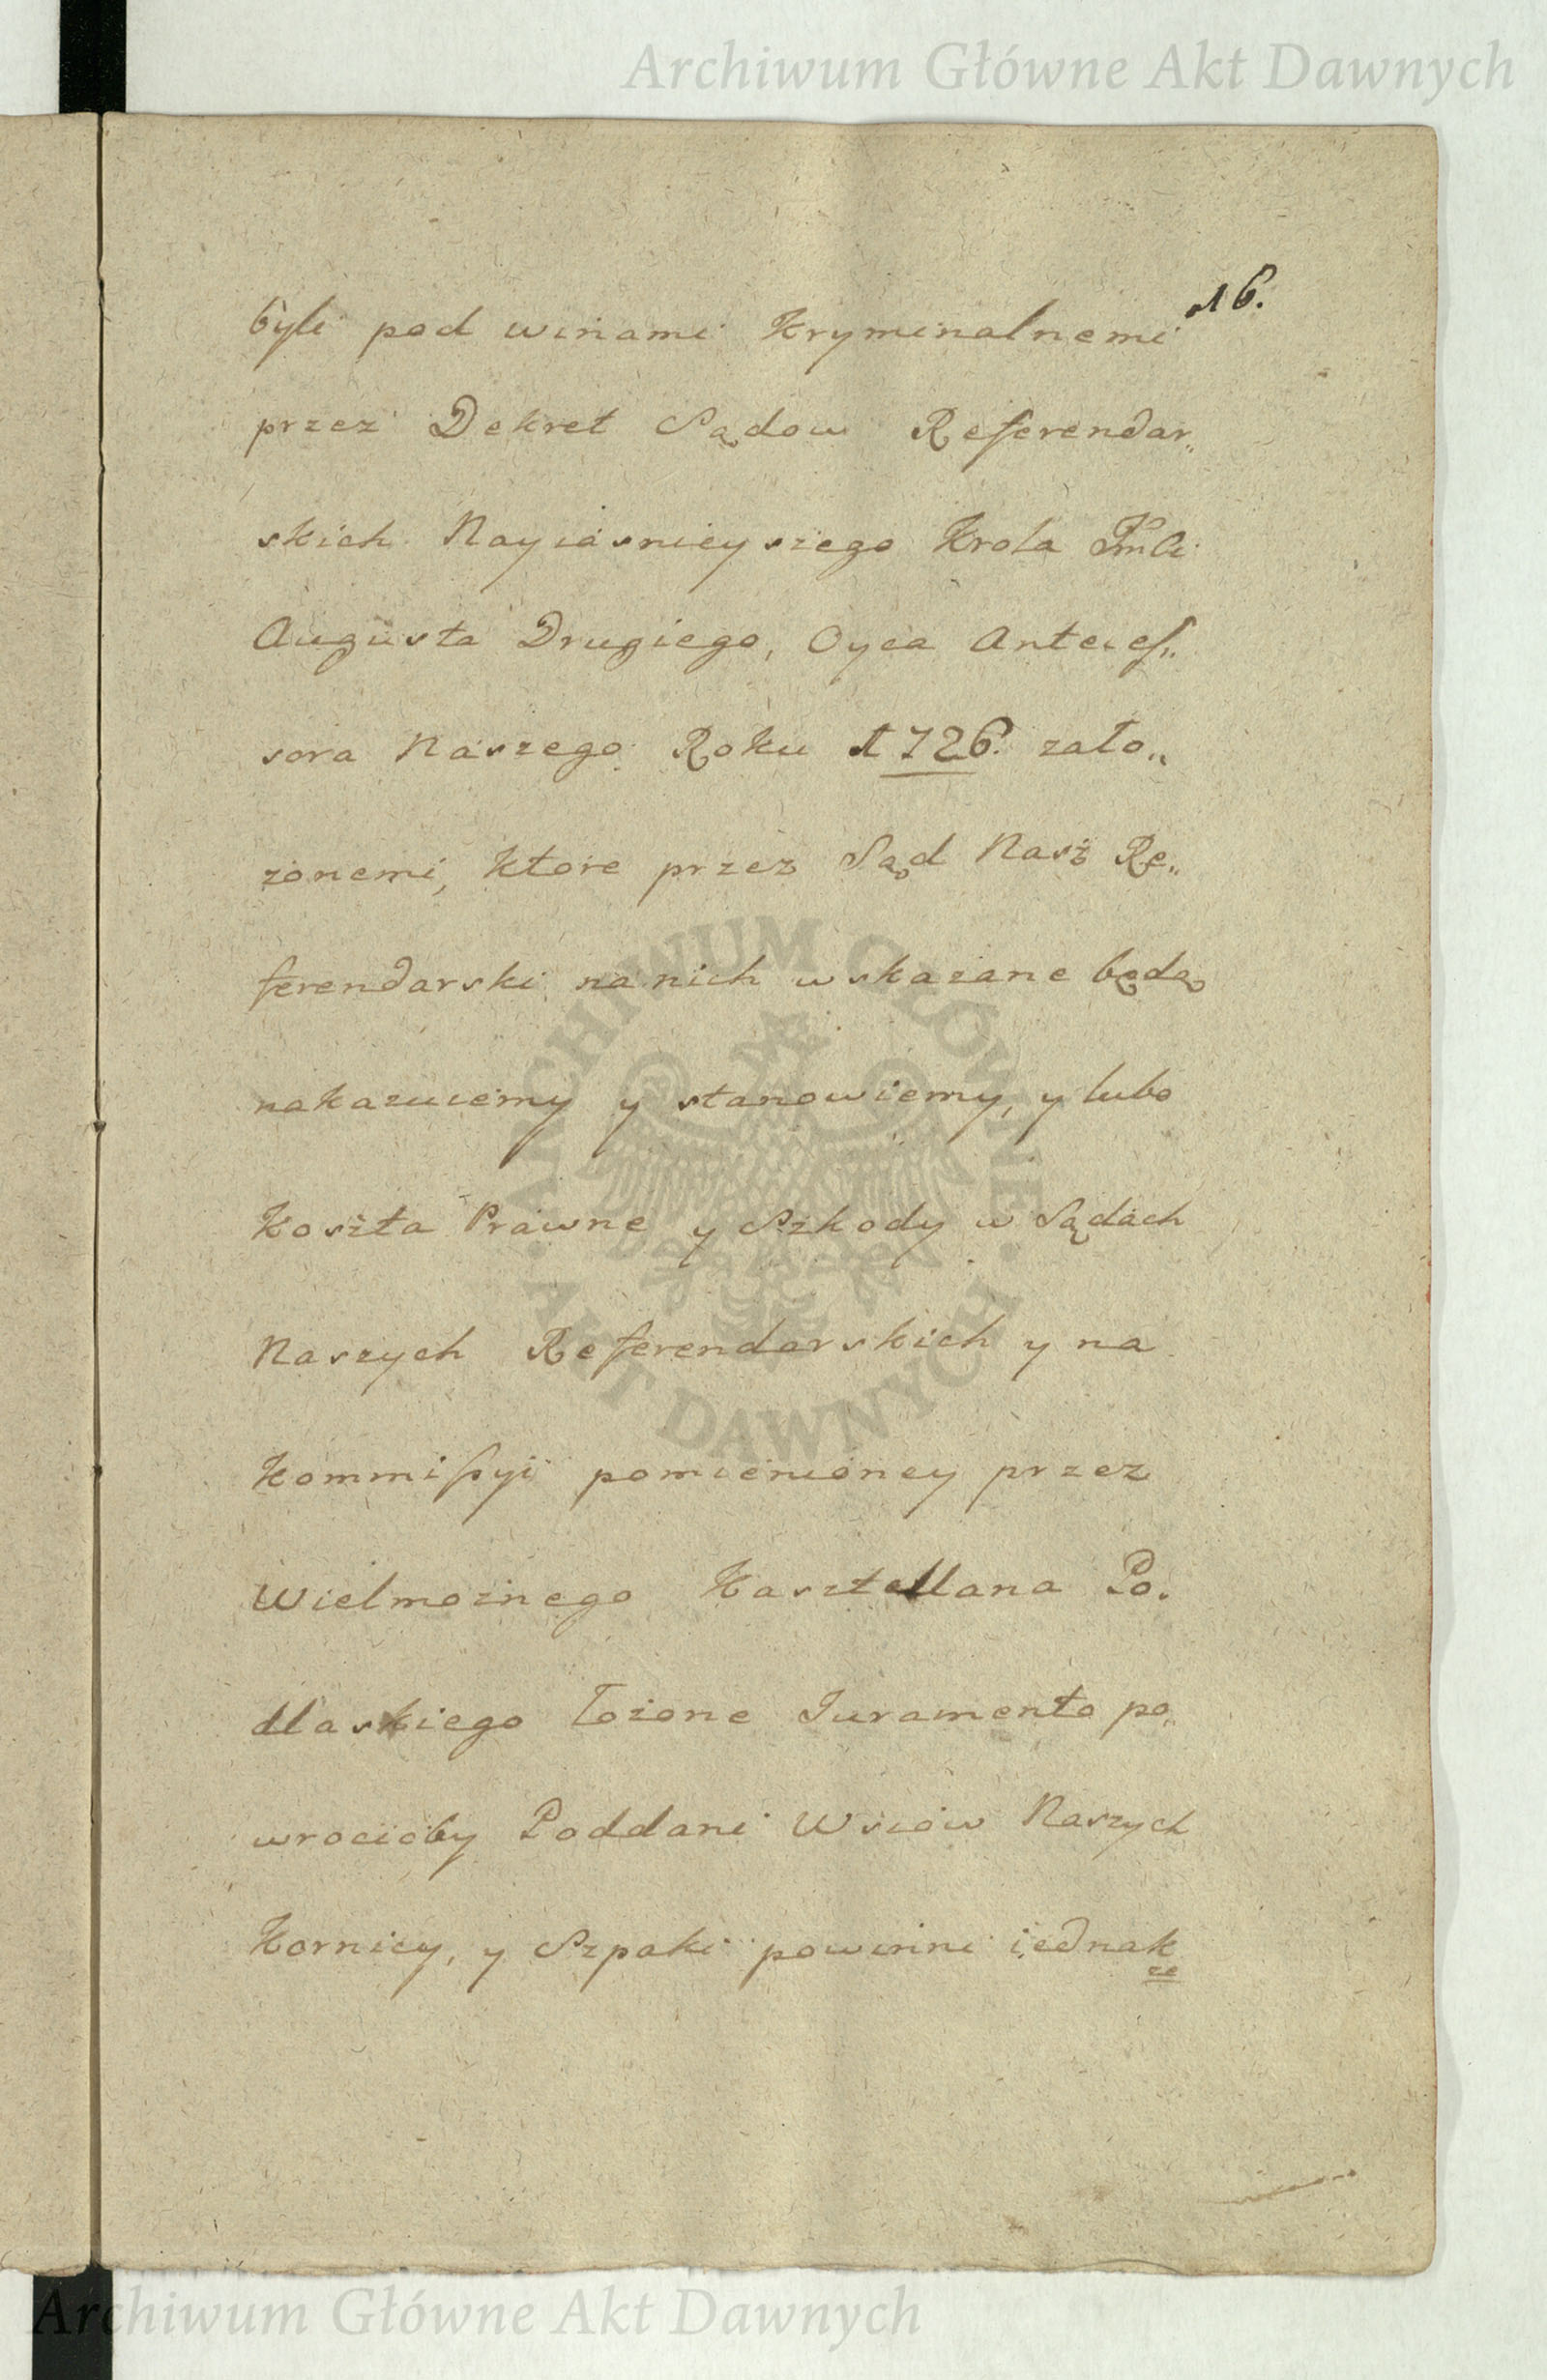 Archiwum Główne Akt Dawnych
16.
byli pod winami Kryminalnemi
przez Dekret Sądow Referendar„
skich Nayiasnieyszego Krola Jmći
Augusta Drugiego, Oyca Anteces„
sora Naszego Roku 1726. zało„
zonemi, ktore przez Sąd Nasz Re„
ferendarski na nich wskazane będą
nakazuiemy y stanowiemy, y lubo
Koszta Prawne y Szkody w Sądach
Naszych Referendarskich y na
Kommissyi pomienioney przez
Wielmoznego Kasztellana Po.
dlaskiego łozone Juramento po„
wrocicby Poddani Wsiow Naszych
Kornicy, y Szpaki powinni iednak
ze
ARCHIWUM GŁÓWNE
AKT DAWNYCH
Archiwum Główne Akt Dawnych